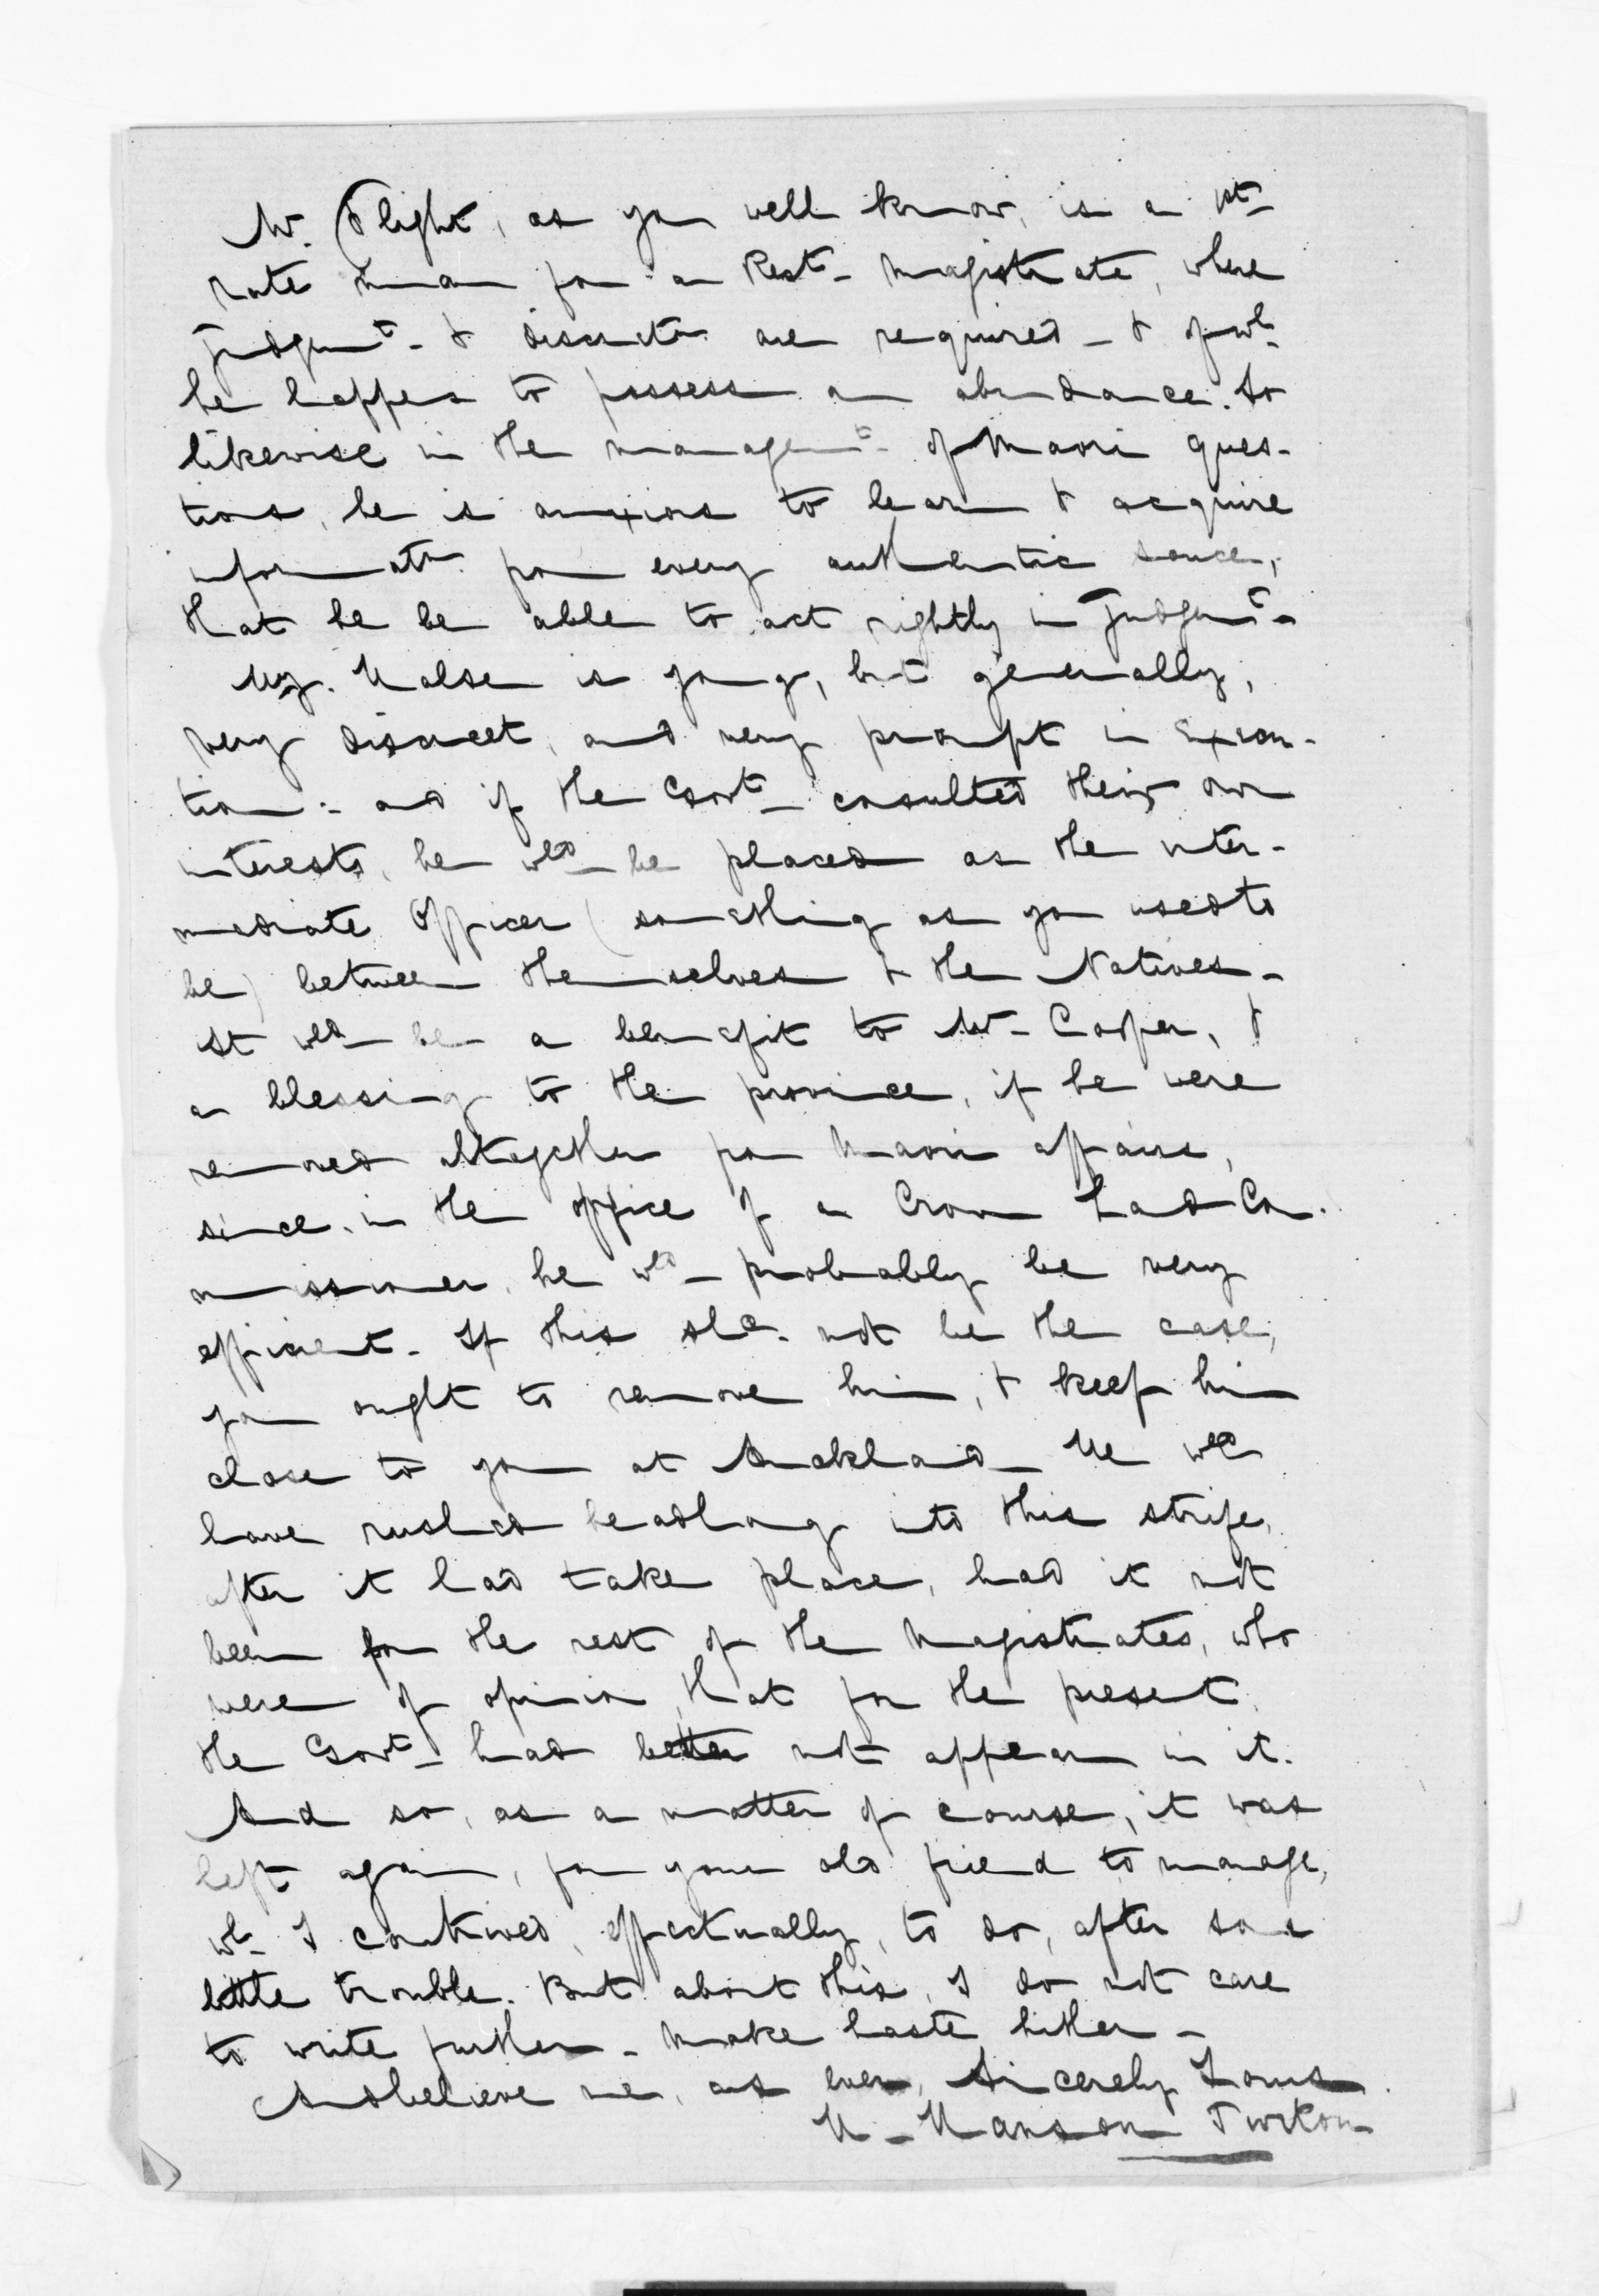 Mr. Flight, as you well know, is a 1st-
rate man for a Rest- Magistrate, where
Judgmt- & discretn are required - & of wh-
he happens to possess an abundance. So
likewise in the managemt- of Maori ques-
tions, he is anxious to learn & acquire
informatn. from every authentic source,
that he be able to act rightly in Judgmt-
Mr. Halse is young, but generally,
very discreet, and very prompt in Execu-
tion:- and if the Govt- consulted their own
interests, he wld- be placed as the inter-
mediate Officer (something as you used to
be) between themselves & the Natives-
It wld- be a benefit to Mr- Cooper, &
a blessing to the province, if he were
removed altogether from Maori affairs,
since, in the office of a Crown Land Com-
missioner, he wld- probably be very
efficient- If this shd. not be the case,
you ought to remove him, & keep him
close to you at Auckland- He wld
have rushed headlong into this strife,
after it had taken place, had it not
been for the rest of the Magistrates, who
were of opinion that for the present,
the Govt- had better not appear in it.
And so, as a matter of course, it was
left again, for your old friend to manage,
wh- I contrived, effectually, to do, after some
little trouble. But about this, I do not care
to write further- Make haste hither-
And believe me, as ever, Sincerely Yours.
H- Hanson Turton